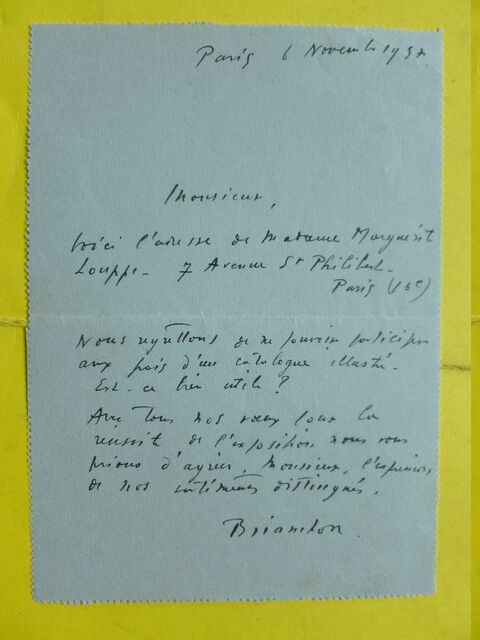 Paris 6 Novembre 193
Monsieur,
Voici l'adresse de Madame Marguerite
Louppe - 7 Avenue St Philibert -
Paris (16e)
Nous regrettons de ne pouvoir participer
aux frais d'un catalogue illustré -
Est-ce bien utile ?
Avec tous nos vœux pour la
reussite de l'exposition nous vous
prions d'agréer, Monsieur, l'expression
de nos sentiments distingués.
Brianchon.